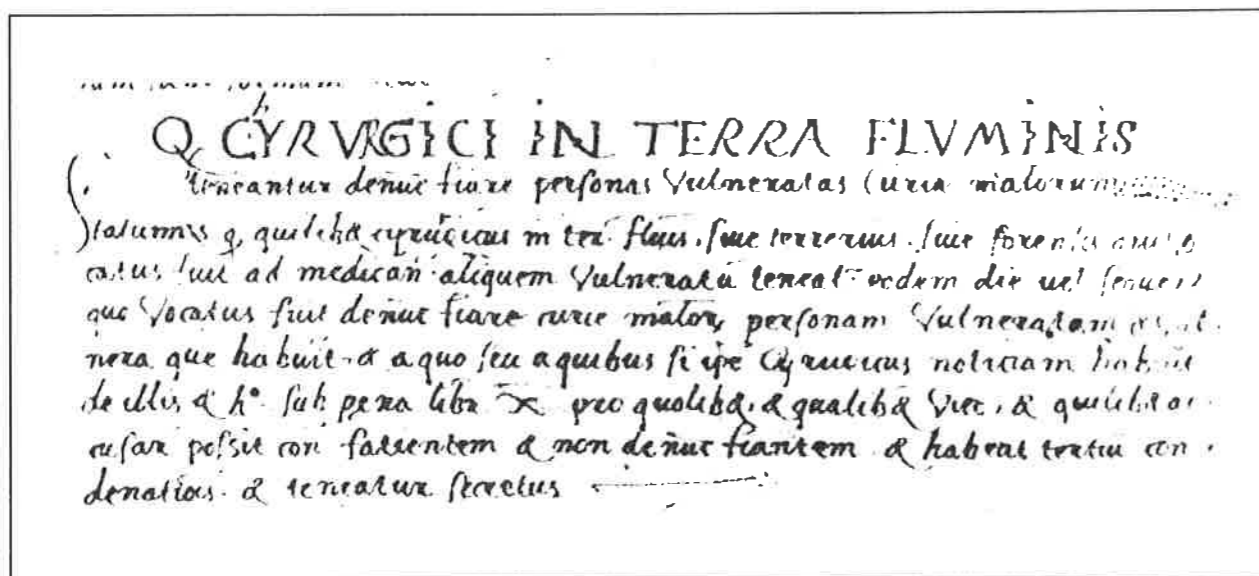 Q CYRVRGICI IN TERRA FLVMINIS
teneantur denūctiare personas Vulneratas Curia malorum
Statuimus q, quilibꝫ cyrurgicus in ter. flūis. siue terrerius. siue forensis
catus fuit ad medicañ aliquem Vulneratū teneat eodem die uel sequenti
quo Vocatus fuit denūctiare curie malorꝫ personam Vulneratam &
nera que habuit. & a quo seu a quibus si ipē Cyrurgicus noticiam habuit
de illis & h° sub pena libr X pro quolibꝫ. & qualibꝫ Vice. & quilibꝫ ac
cusare possit con facientem & non denūctiantem & habeat tertiū con
denatiōis. & teneatur secretus